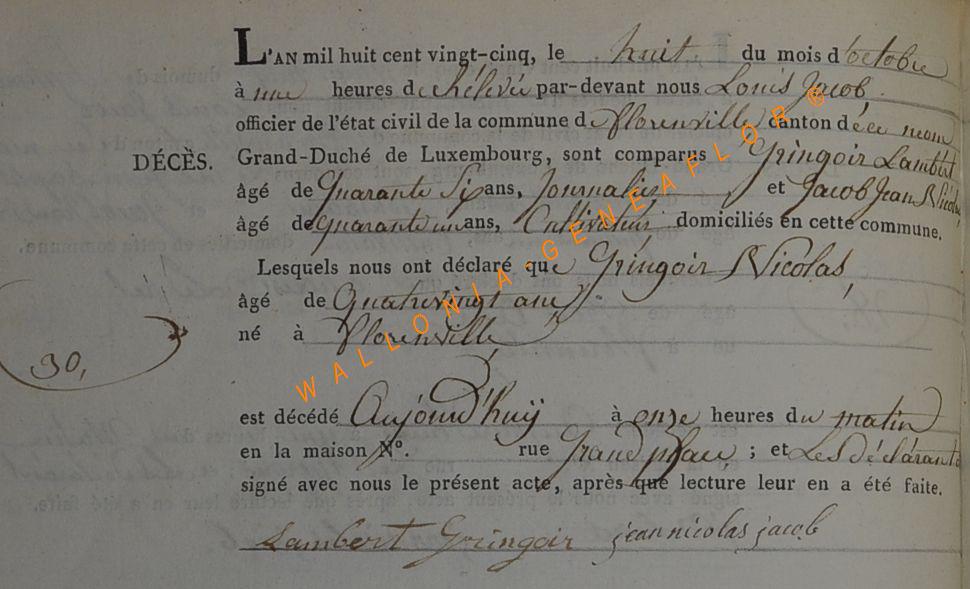 L'AN mil huit cent vingt-cinq, le huit du mois d'octobre
à une heures de rélévée par-devant nous Louis Jacob
officier de l'état civil de la commune de Florenville canton de ce nom
DÉCÈS. Grand-Duché de Luxembourg, sont comparus Gringoir Lambert
âgé de Quarante Six ans, Journalier et Jacob Jean Nicolas
âgé de quarante un ans, Cultivateur domiciliés en cette commune.
Lesquels nous ont déclaré que Gringoir Nicolas,
âgé de Quatrevingt ans
né à Florenville
30,
est décédé Aujourd'huÿ à onze heures du matin
en la maison N°. rue Grand place ; et Les déclarants
signé avec nous le présent acte, après que lecture leur en a été faite.
Lambert Gringoir jean nicolas jacob
WALLONIA-GENEAFLOR ®